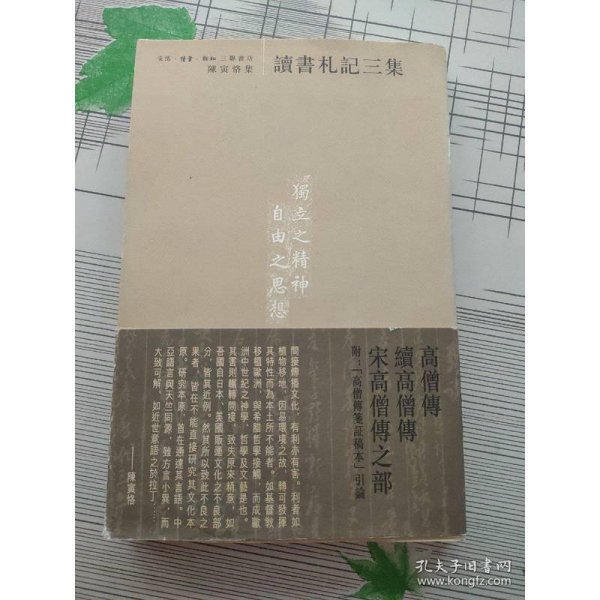 生活·讀書·新知三聯書店
陳寅恪集
讀書札記三集
獨立之精神
自由之思想
高僧傳
續高僧傳
宋高僧傳之部
附:「高僧傳箋証稿本」引論
間接傳播文化,有利亦有害。利者如
植物移地,因易環境之故,轉可發揮
其特性而為本土所不能者。如基督教
移植歐洲,與希臘哲學接觸,而成歐
洲中世紀之神學、哲學及文藝是也。
其害則輾轉間接,致失原來精意,如
吾國自日本、美國販運文化之不良部
分,皆其近例。然其所以致此不良之
果者,皆在不能直接研究其文化本
原。研究本原,首在通達其言語。中
亞語言與天竺同源,雖方言小異,而
大致可解,如近世意語之於拉丁……
——陳寅恪
孔夫子旧书网
www.kongfz.com